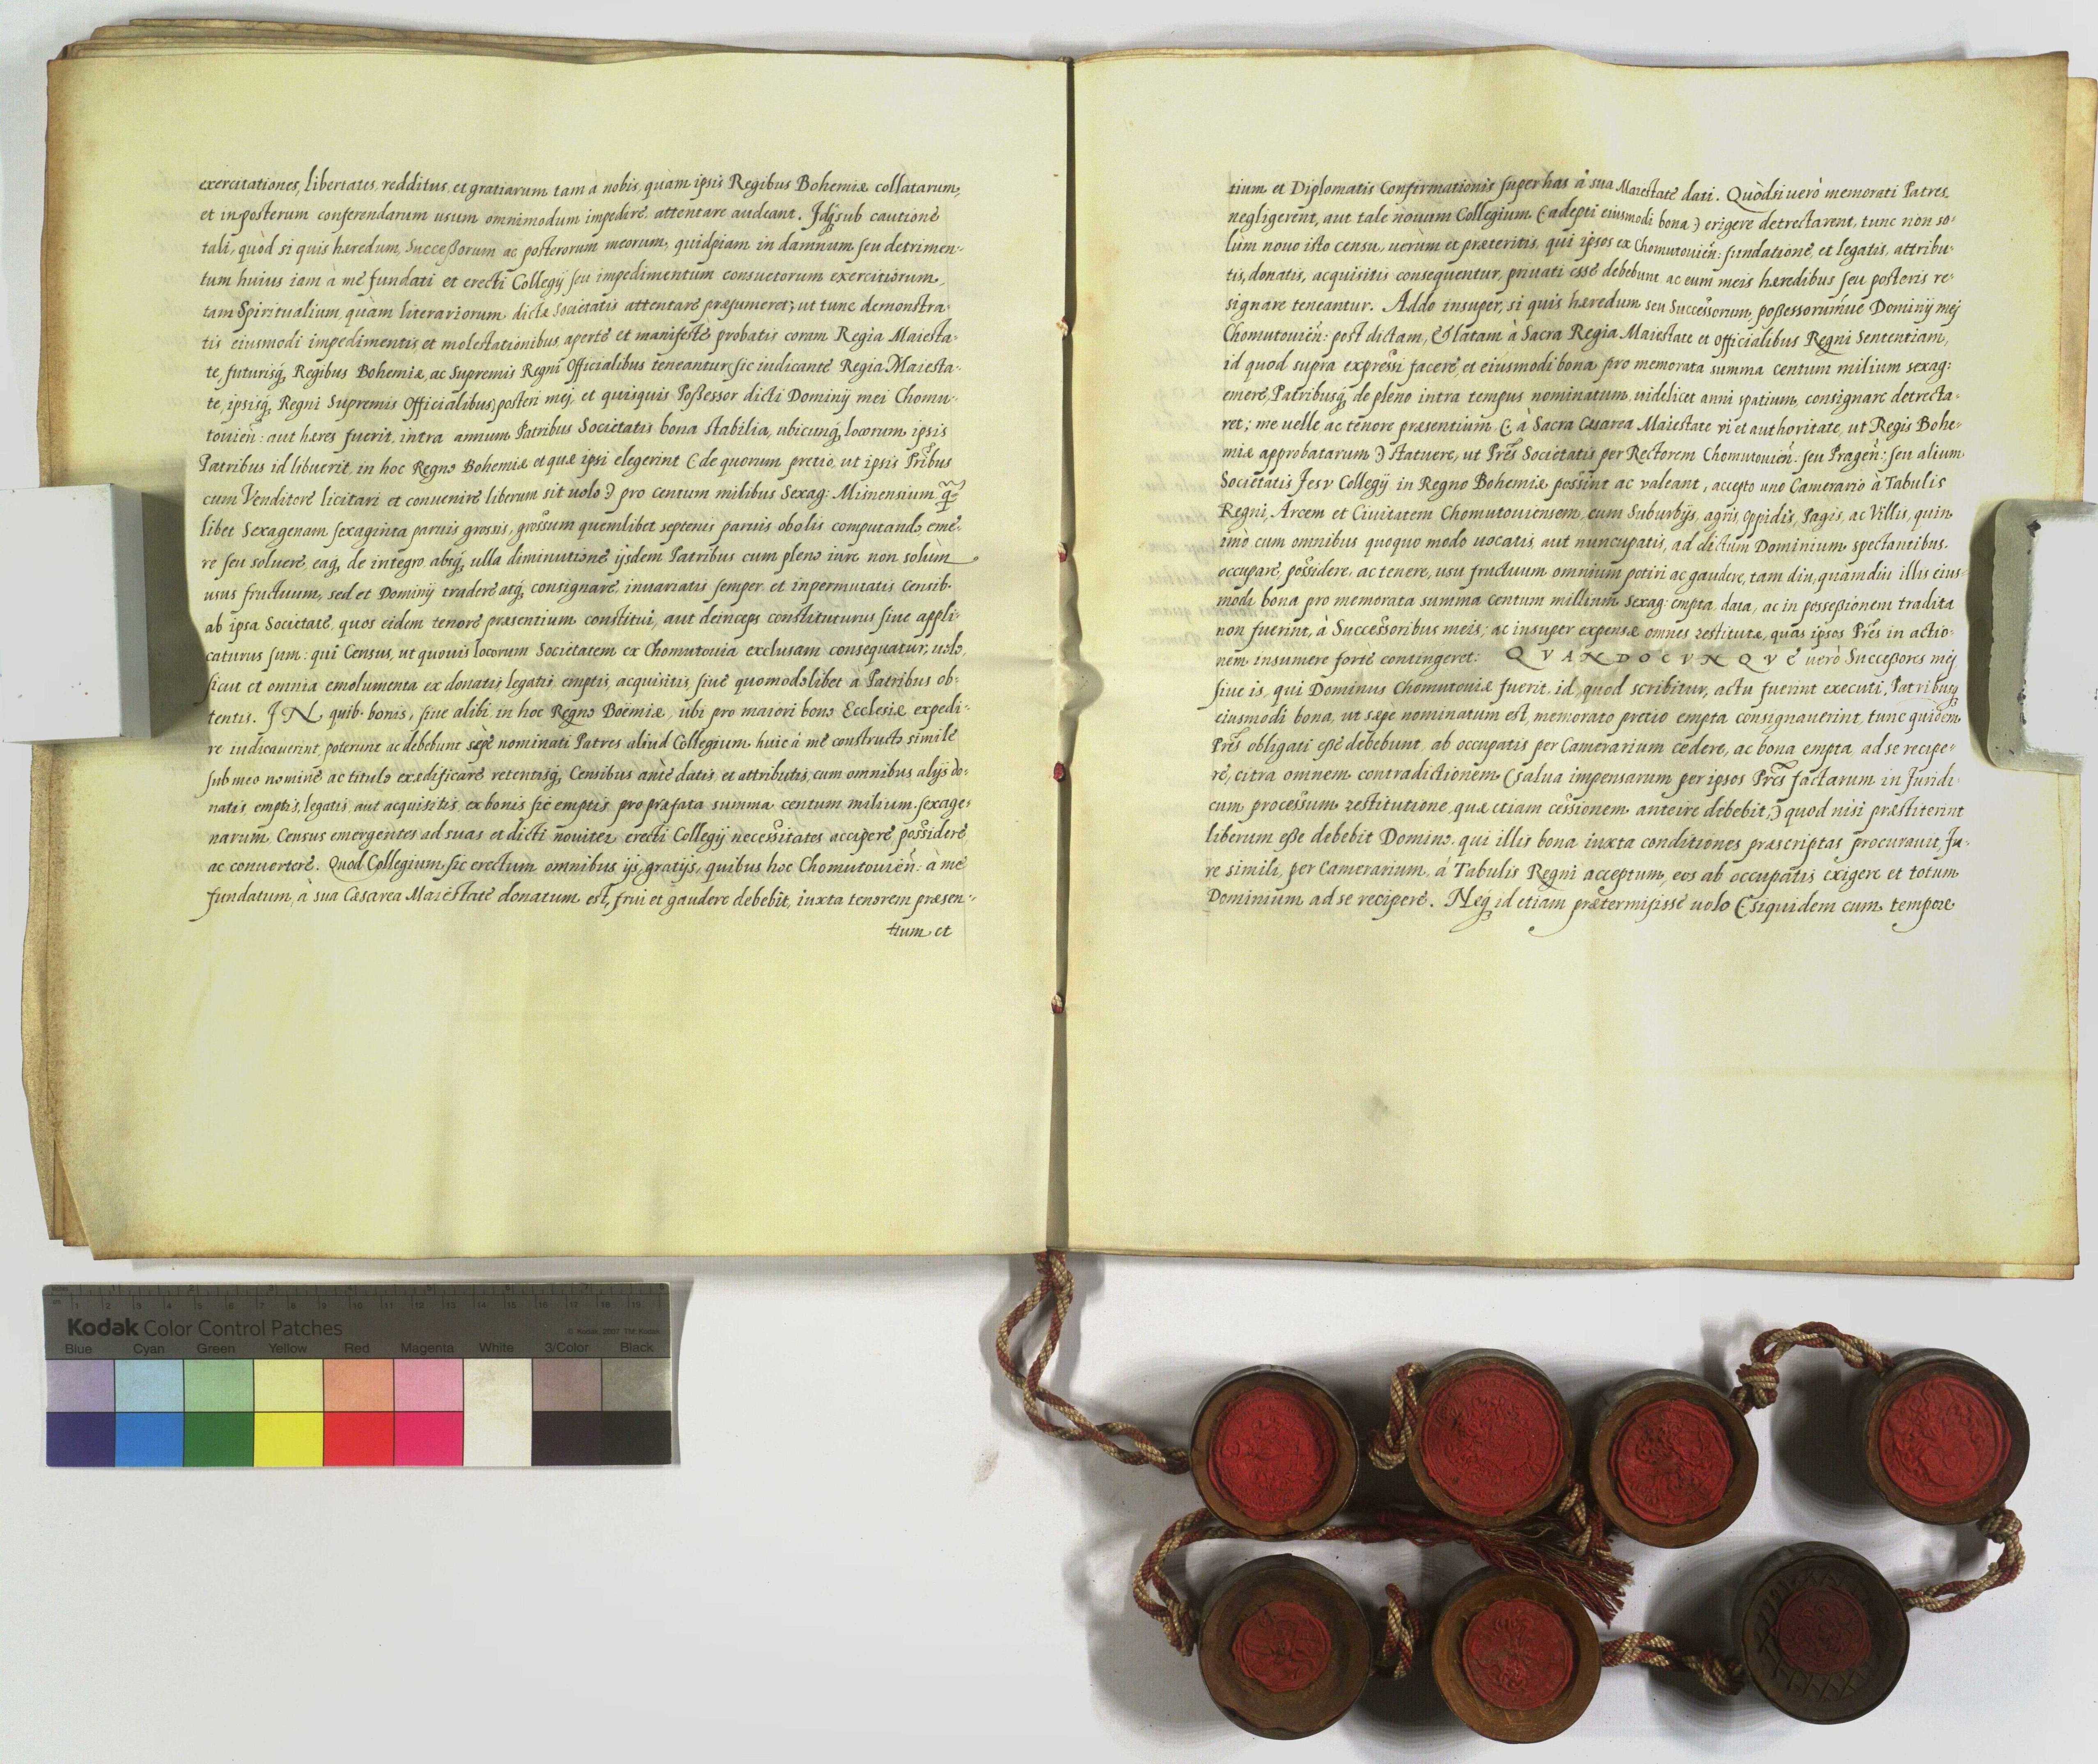 exercitationes, libertates, redditus, et gratiarum tam à nobis, quam ipsis Regibus Bohemiæ collatarum,
et in posterum conferendarum usum omnimodum impedire, attentare audeant. Idq́ sub cautione
tali, quòd si quis hæredum, Successorum ac posterorum meorum, quidpiam in damnum seu detrimen-
tum huius iam à me fundati et erecti Collegij seu impedimentum consuetorum exercitiorum,
tam Spiritualium quàm literariorum dictæ societatis attentare præsumeret; ut tunc demonstra-
tis eiusmodi impedimentis et molestationibus apertè et manifestè probatis coram Regia Maiesta-
te, futurisq́ Regibus Bohemiæ, ac Supremis Regni Officialibus teneantur (sic iudicante Regia Maiesta-
te, ipsisq́ Regni Supremis Officialibus) posteri mej, et quisquis Possessor dicti Dominij mei Chomu-
touień: aut hæres fuerit, intra annum Patribus Societatis bona stabilia, ubicunq́ locorum ipsis
Patribus id libuerit, in hoc Regno Bohemiæ et quæ ipsi elegerint (de quorum pretio, ut ipsis Pr̃ibus
cum Venditore licitari et conuenire liberum sit uolo) pro centum milibus Sexag: Misnensium q̃-
libet Sexagenam sexaginta paruis grossis, grossum quemlibet septenis paruis obolis computando, eme-
re seu soluere, eaq́ de integro absq́ ulla diminutione ijsdem Patribus cum pleno iure non solùm
usus fructuum, sed et Dominij tradere atq́ consignare, inuariatis semper et inpermutatis Censib.
ab ipsa Societate, quos eidem tenore præsentium constitui, aut deinceps constituturus siue appli-
caturus sum: qui Census, ut quouis locorum Societatem ex Chomutouia exclusam consequatur, uolo,
sicut et omnia emolumenta ex donatis, legatis, emptis, acquisitis, siue quomodolibet à Patribus ob-
tentis. IN quib. bonis, siue alibi in hoc Regno Boëmiæ, ubi pro maiori bono Ecclesiæ expedi-
re iudicauerint, poterunt ac debebunt sæpe nominati Patres aliud Collegium huic à me constructo simile
sub meo nomine ac titulo exædificare retentisq́ Censibus antè datis et attributis, cum omnibus alijs do-
natis, emptis, legatis, aut acquisitis, ex bonis sic emptis pro præfata summa centum milium sexage-
narum Census emergentes ad suas et dicti nouiter erecti Collegij necessitates accipere, possidere,
ac conuertere. Quod Collegium sic erectum omnibus ijs gratijs, quibus hoc Chomutouień: à me
fundatum, à sua Cæsarea Maiestate donatum est, frui et gaudere debebit, iuxta tenorem præsen-
tium et
tium et Diplomatis Confirmationis super has à sua Maiestate dati. Quòd si verò memorati Patres
negligerent, aut tale nouum Collegium (adepti eiusmodi bona) erigere detrectarent, tunc non so-
lùm nouo isto censu, uerùm et præteritis, qui ipsos ex Chomutouień: fundatione, et legatis, attribu-
tis, donatis, acquisitis consequentur, priuati esse debebunt ac eum meis hæredibus seu posteris re-
signare teneantur. Addo insuper, si quis hæredum seu Successorum, possessorumue Dominij mej
Chomutouień: post dictam, & latam à Sacra Regia Maiestate et officialibus Regni Sententiam,
id quod supra expressi facere, et eiusmodi bona pro memorata summa centum milium sexag:
emere, Patribusq́ de pleno intra tempus nominatum, uidelicet anni spatium, consignare detrecta-
ret; me uelle ac tenore præsentium (à Sacra Cæsarea Maiestate vi et authoritate, ut Regis Bohe-
miæ approbatarum) statuere, ut Pr̃es Societatis per Rectorem Chomutouień: seu Prageń: seu alium
Societatis Jesv Collegij in Regno Bohemiæ possint ac valeant, accepto uno Camerario à Tabulis
Regni, Arcem et Ciuitatem Chomutouiensem, cum Suburbijs, agris, oppidis, Pagis, ac Villis, quin
imò cum omnibus quoquo modo uocatis, aut nuncupatis, ad dictum Dominium spectantibus,
occupare, possidere, ac tenere, usu fructuum omnium potiri ac gaudere, tam diu, quàm diu illis eius-
modi bona pro memorata summa centum millium Sexag: empta, data, ac in possessionem tradita
non fuerint, à Successoribus meis; ac insuper expensæ omnes restitutæ, quas ipsos Pr̃es in actio-
nem insumere fortè contingeret: QVANDOCVNQVE uerò Successores mej
siue is, qui Dominus Chomutouiæ fuerit, id, quod scribitur, actu fuerint executi, Patribusq́
eiusmodi bona, ut sæpè nominatum est, memorato pretio empta consignauerint, tunc quidem
Pr̃es obligati esse debebunt, ab occupatis per Camerarium cedere, ac bona empta ad se recipe-
re, citra omnem contradictionem (salua impensarum per ipsos Pr̃es factarum in Juridi-
cum processum restitutione, quæ etiam cessionem anteire debebit,) quod nisi præstiterint
liberum esse debebit Domino, qui illis bona iuxta conditiones præscriptas procurauit, Ju-
re simili, per Camerarium à Tabulis Regni acceptum, eos ab occupatis exigere et totum
Dominium ad se recipere. Neq́ id etiam prætermisisse uolo (siquidem cum tempore
Kodak Color Control Patches
© Kodak, 2007 TM: Kodak
Blue Cyan Green Yellow Red Magenta White 3/Color Black